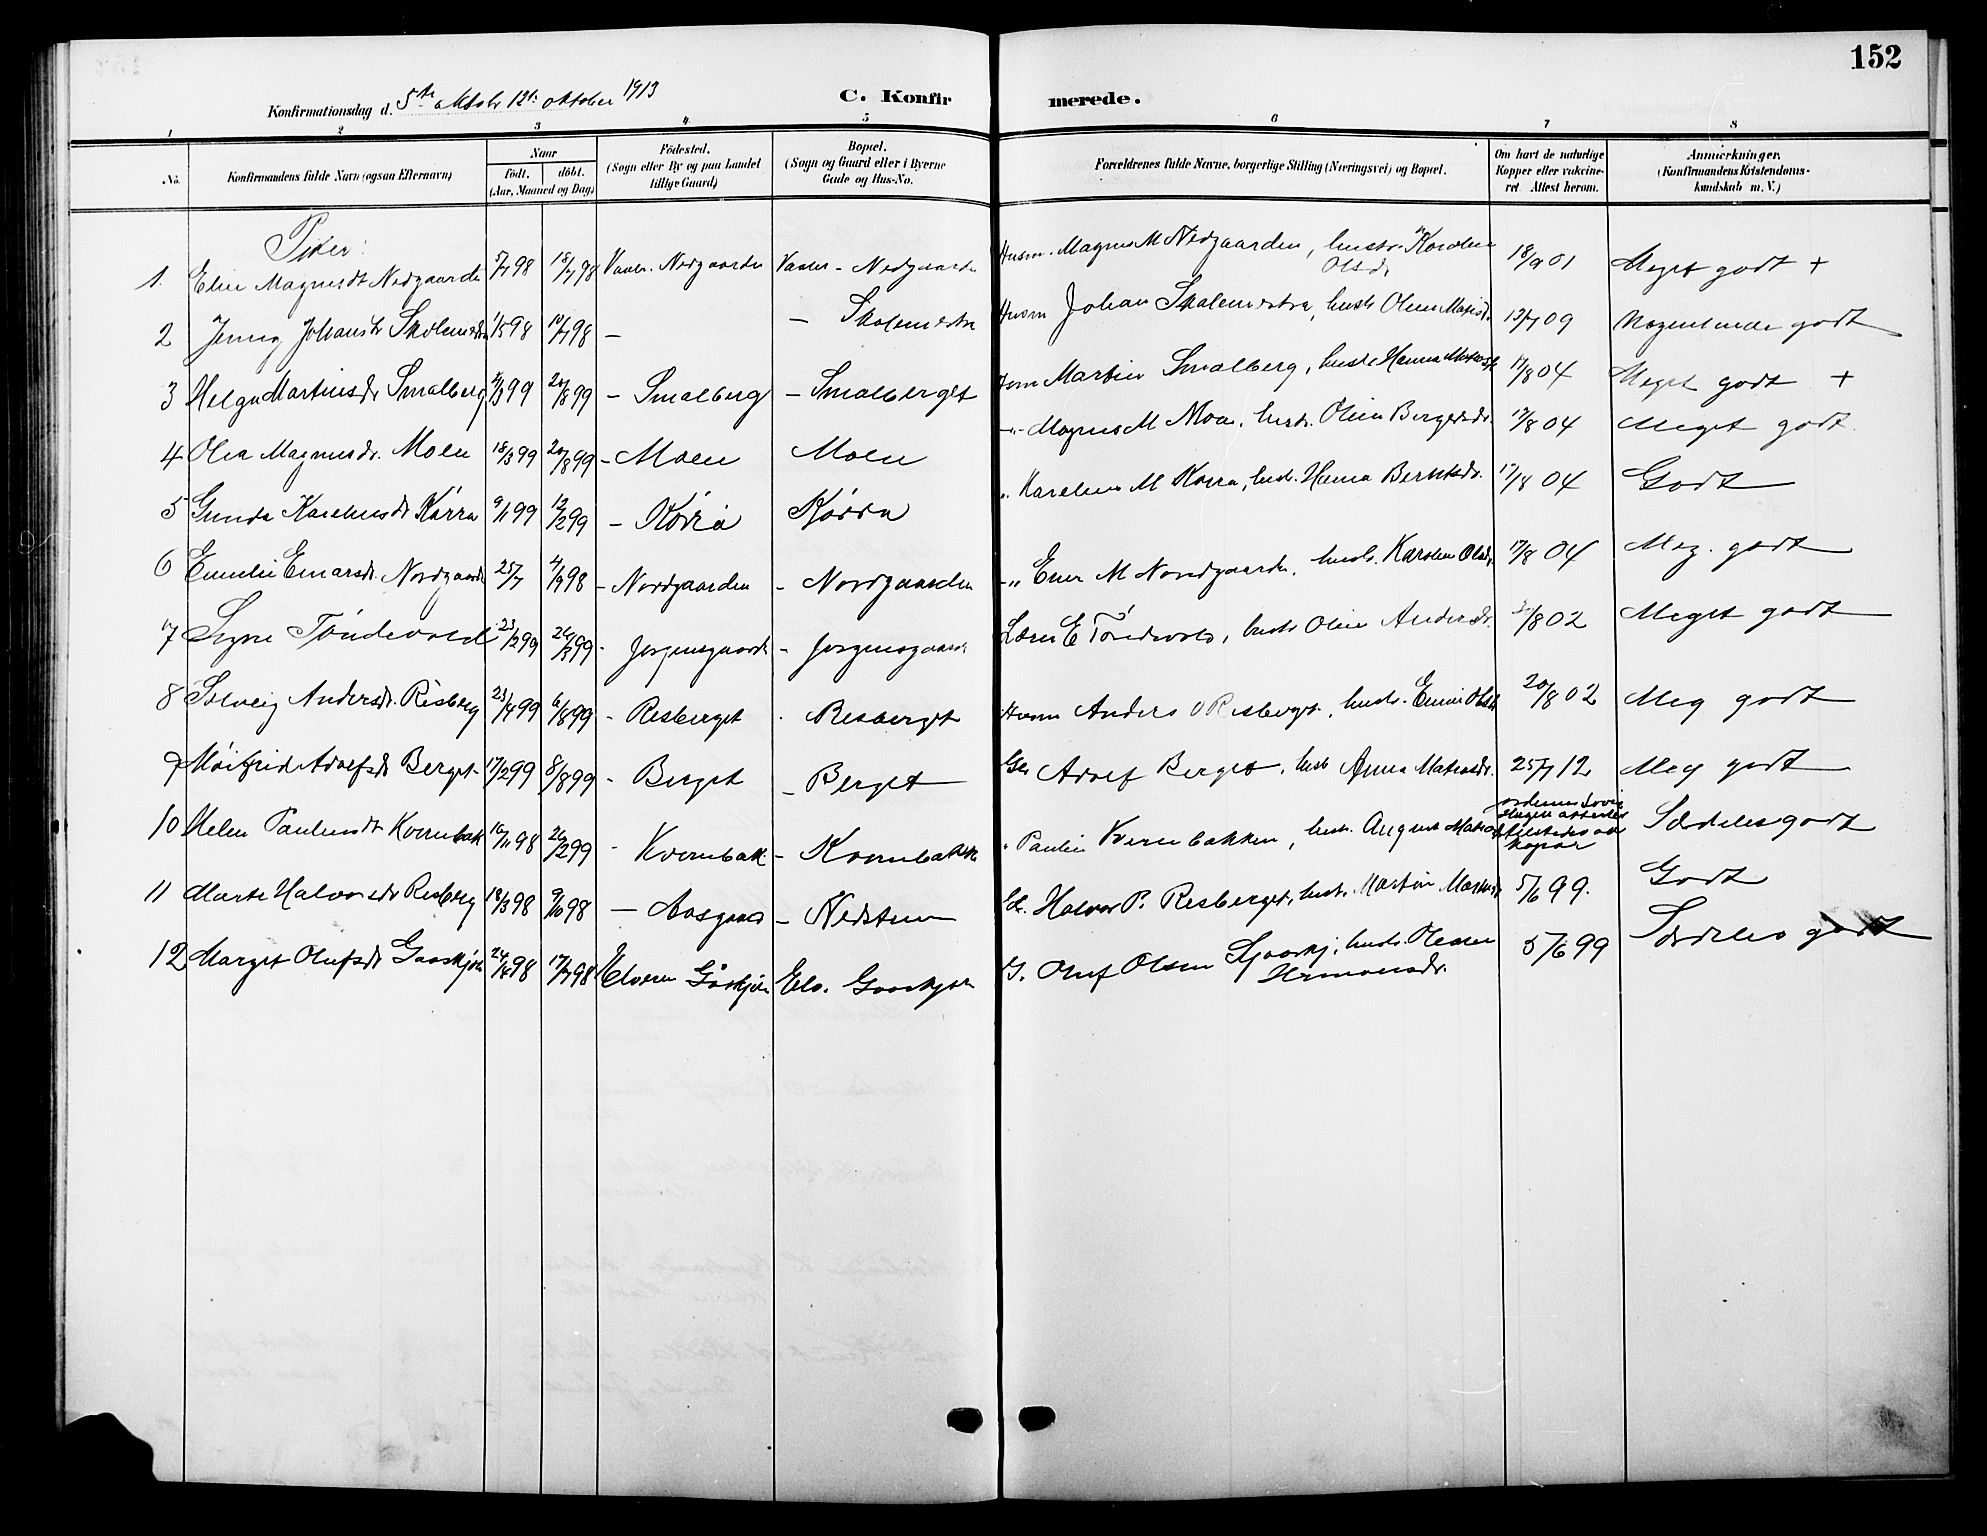 152
Konfirmationsdag d. 5te oktober 12te oktober 1913 C. Konfirmerede.
1 2 3 4 5 6 7 8
No. Konfirmandens fulde Navn (ogsaa Efternavn) Naar født. døbt. (Aar, Maaned og Dag) Fødested. (Sogn eller By og paa Landet tillige Gaard) Bopæl. (Sogn og Gaard eller i Byerne Gade og Hus-No. Forældrenes fulde Navne, borgerlige Stilling (Næringsvei) og Bopæl. Om havt de naturlige Kopper eller vakcineret. Attest herom. Anmærkninger. (Konfirmandens Kristendomskundskab m. V.)
Piker:
1. Magnusdt Nedgaarden 98 18/7 98 Nedgaarden Nedgaarden Husm. Magnus M Nedgaarden, hustr. Karolin Olsdr 18/9 01 Meget godt +
2 Jenny Johansdr 1/5 98 10/7 98 — — Skolemestra Husm Johan Skolemestra, hustr 13/7 09 godt
3 Helga Martinsdr Smalberg 99 20/8 99 – Smalberg – Smalberget Martin Smalberg, hustr Hanna 17/8 04 Meget godt +
4 Olea Magnusdr. Moen 18/3 99 20/8 99 – Moen Moen –"– Magnus M Moen, hustr. Olea Bergersdr. 17/8 04 Meget godt.
5 Gunda Karelinsdr Kørra 9/1 99 12/2 99 – Kørra Kørra " M Kørra, hustr. Hanna Berntsdr. 17/8 04 Godt
6 Emilie Einarsdr. Nordgaarden 25/7 4/9 98 – Nordgaarden – Nordgaarden –" M Nordgaarden, hustr. Karolin Olsdr. 17/8 04 Meg. godt
7 Signe Tøndevold 23/2 99 26/3 99 - Jørgensgaarden - Jørgensgaarden E Tøndevold, hustr Oline Andersdr. /8 02 Meget godt
8 Solveig Andersdr. Risberg 23/4 99 6/8 99 - Risberget - Risberget Husm Anders O Risberget, hustr. 20/8 02 Meg godt
9 Møifrid Adolfsdr Berget 17/2 99 8/8 99 - Berget – Berget Adolf Berget, hustr Anna Matiasdr. 25/7 12 Meg godt
10 Helen Kvernbak 16/11 98 26/2 99 - Kvernbak – Kvernbakken " Paulin Kvernbakken, hustr. August kopar Særdeles godt
11 Marte Halvorsdr Risberg 18/3 98 9/10 98 — Aasgaard – Nedstuen Halvor P. Risberget, hustr. Martin 5/6 99. Godt
12 Marget Olufsdr 24/4 98 17/7 98 Elverum Elv. G. Oluf Olsen hustr. Hermansdr. 5/6 99 Særdeles godt